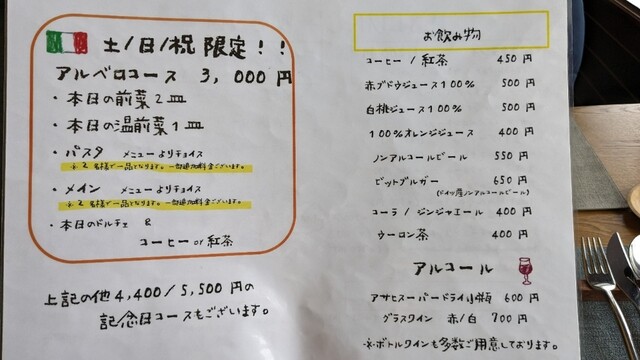 土/日/祝 限定!!
アルベロコース 3,000円
・本日の前菜2皿
・本日の温前菜1皿
・パスタ メニューよりチョイス
※2名様で一品となります。一部追加料金ございます。
・メイン メニューよりチョイス
※2名様で一品となります。一部追加料金ございます。
・本日のドルチェ &
コーヒー or 紅茶
上記の他4,400/5,500円の
記念日コースもございます。
お飲み物
コーヒー / 紅茶 450円
赤ブドウジュース100% 500円
白桃ジュース100% 500円
100%オレンジジュース 400円
ノンアルコールビール 550円
ビットブルガー 650円
(ドイツ産ノンアルコールビール)
コーラ / ジンジャエール 400円
ウーロン茶 400円
アルコール
アサヒスーパードライ小瓶 600円
グラスワイン 赤/白 700円
※ボトルワインも多数ご用意しております。